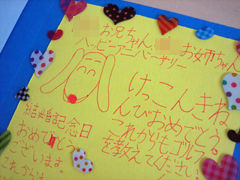 お兄ちゃん お姉ちゃん
ハッピーアニバーサリー
けっこんきね
んびおめでとう。
これからもゴルフ
を教えて下さい
結婚記念日
おめでとう
ございます。